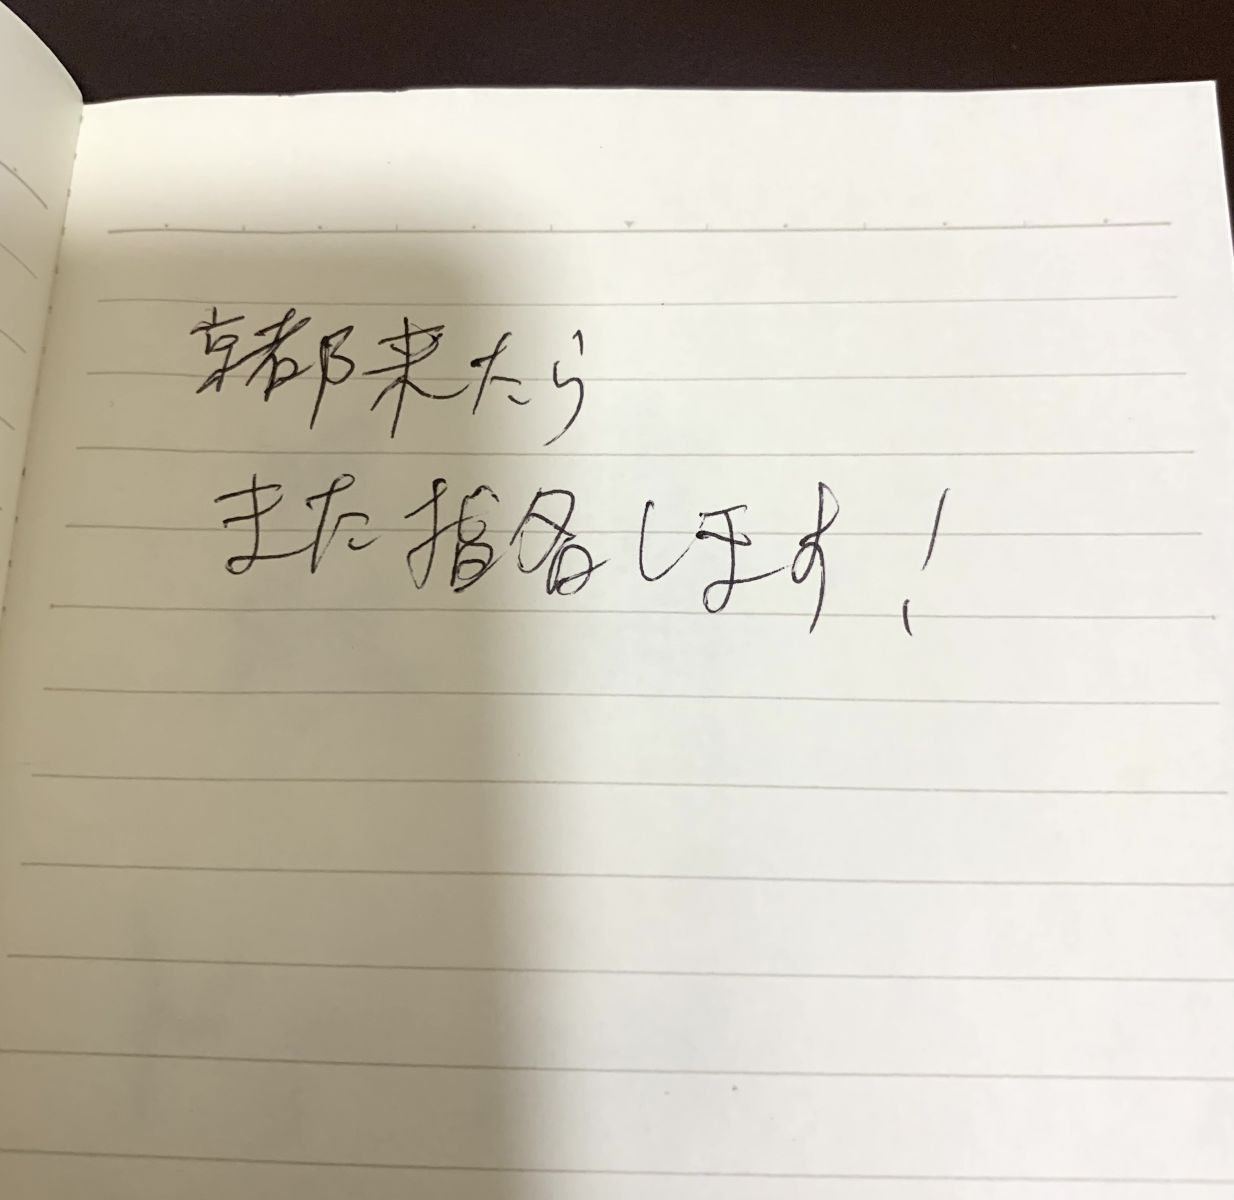 京都来たら
また指名します!